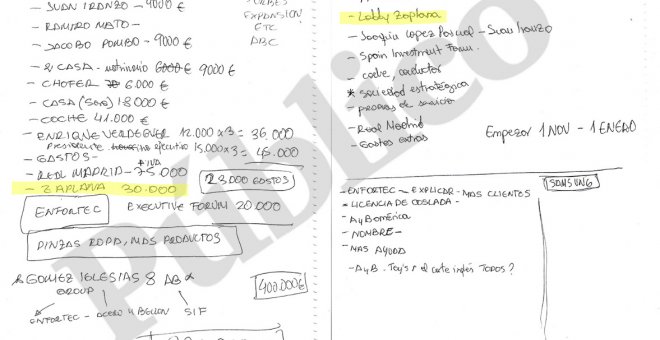 - JUAN IRANZO - 9000 €
- RAMIRO MATO -
- JACOBO POMBO - 9000 €
EXPANSION
ETC
ABC
- CASA - matrimonio 6000 € 9000 €
- CHOFER 6.000 €
- CASA 18.000 €
- COCHE 41.000 €
- ENRIQUE VERDEGUER 12.000 x 3 = 36.000
Presidente ejecutivo 15,000 x 3 = 45.000
- GASTOS -
+ IVA
- REAL MADRID - 75.000
23000 GASTOS
- ZAPLANA 30.000
ENFORTEC
EXECUTIVE FORUM 20.000
PINZAS ROPA, MAS PRODUCTOS
GOMEZ IGLESIAS 8 AB
GROUP
400.000€
ENFORTEC - ACERO SIF
- Lobby Zaplana
- Joaquin Lopez Pascual - Juan Iranzo
- Spain Investment Forum
- coche, conductor
* sociedad estratégica
- propuesta de servicios
- Real Madrid
- Gastos extras
Empezar 1 NOV - 1 ENERO
SAMSUNG
- ENFORTEC - EXPLICAR - MAS CLIENTES
* LICENCIA DE COSLADA -
- AyBomérica
- NOMBRE -
- MAS AYUDA
- AyB - Toys'r el corte inglés TODOS?
Público